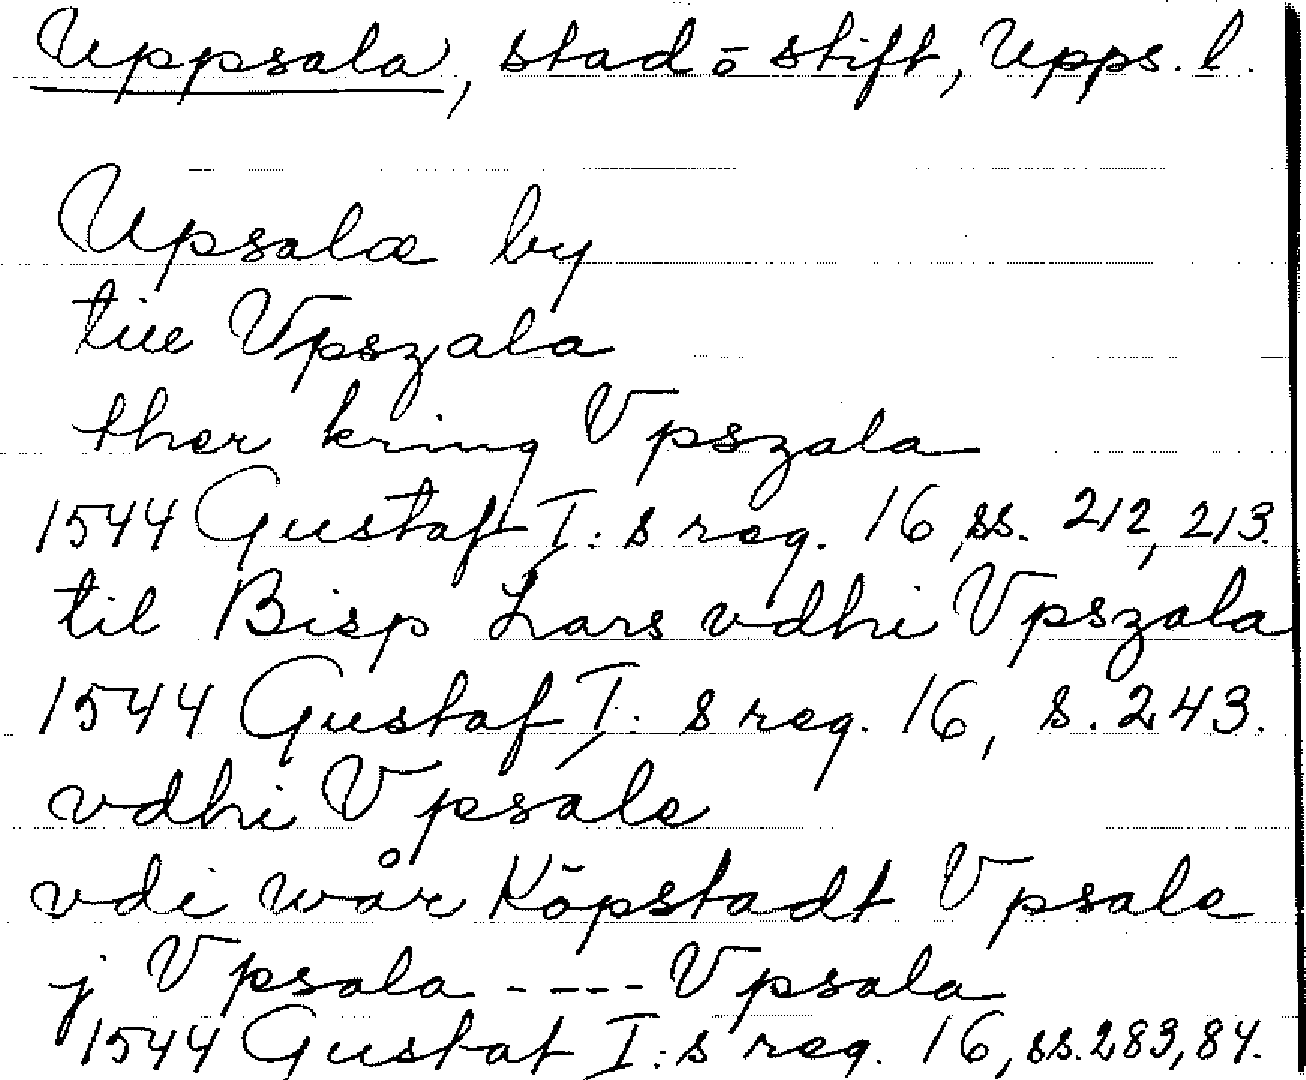 Uppsala, stad o stift, Upps. l.
Upsalæ by
till Vpszala
ther kring Vpszala
1544 Gustaf I:s reg. 16, ss. 212, 213.
til Bisp Lars vdhi Vpszala
1544 Gustaf I:s reg. 16, s. 243.
vdhi Vpsale
vdi wår Köpstadt Vpsale
j Vpsala ---- Vpsala
1544 Gustaf I:s reg. 16, ss. 283, 84.